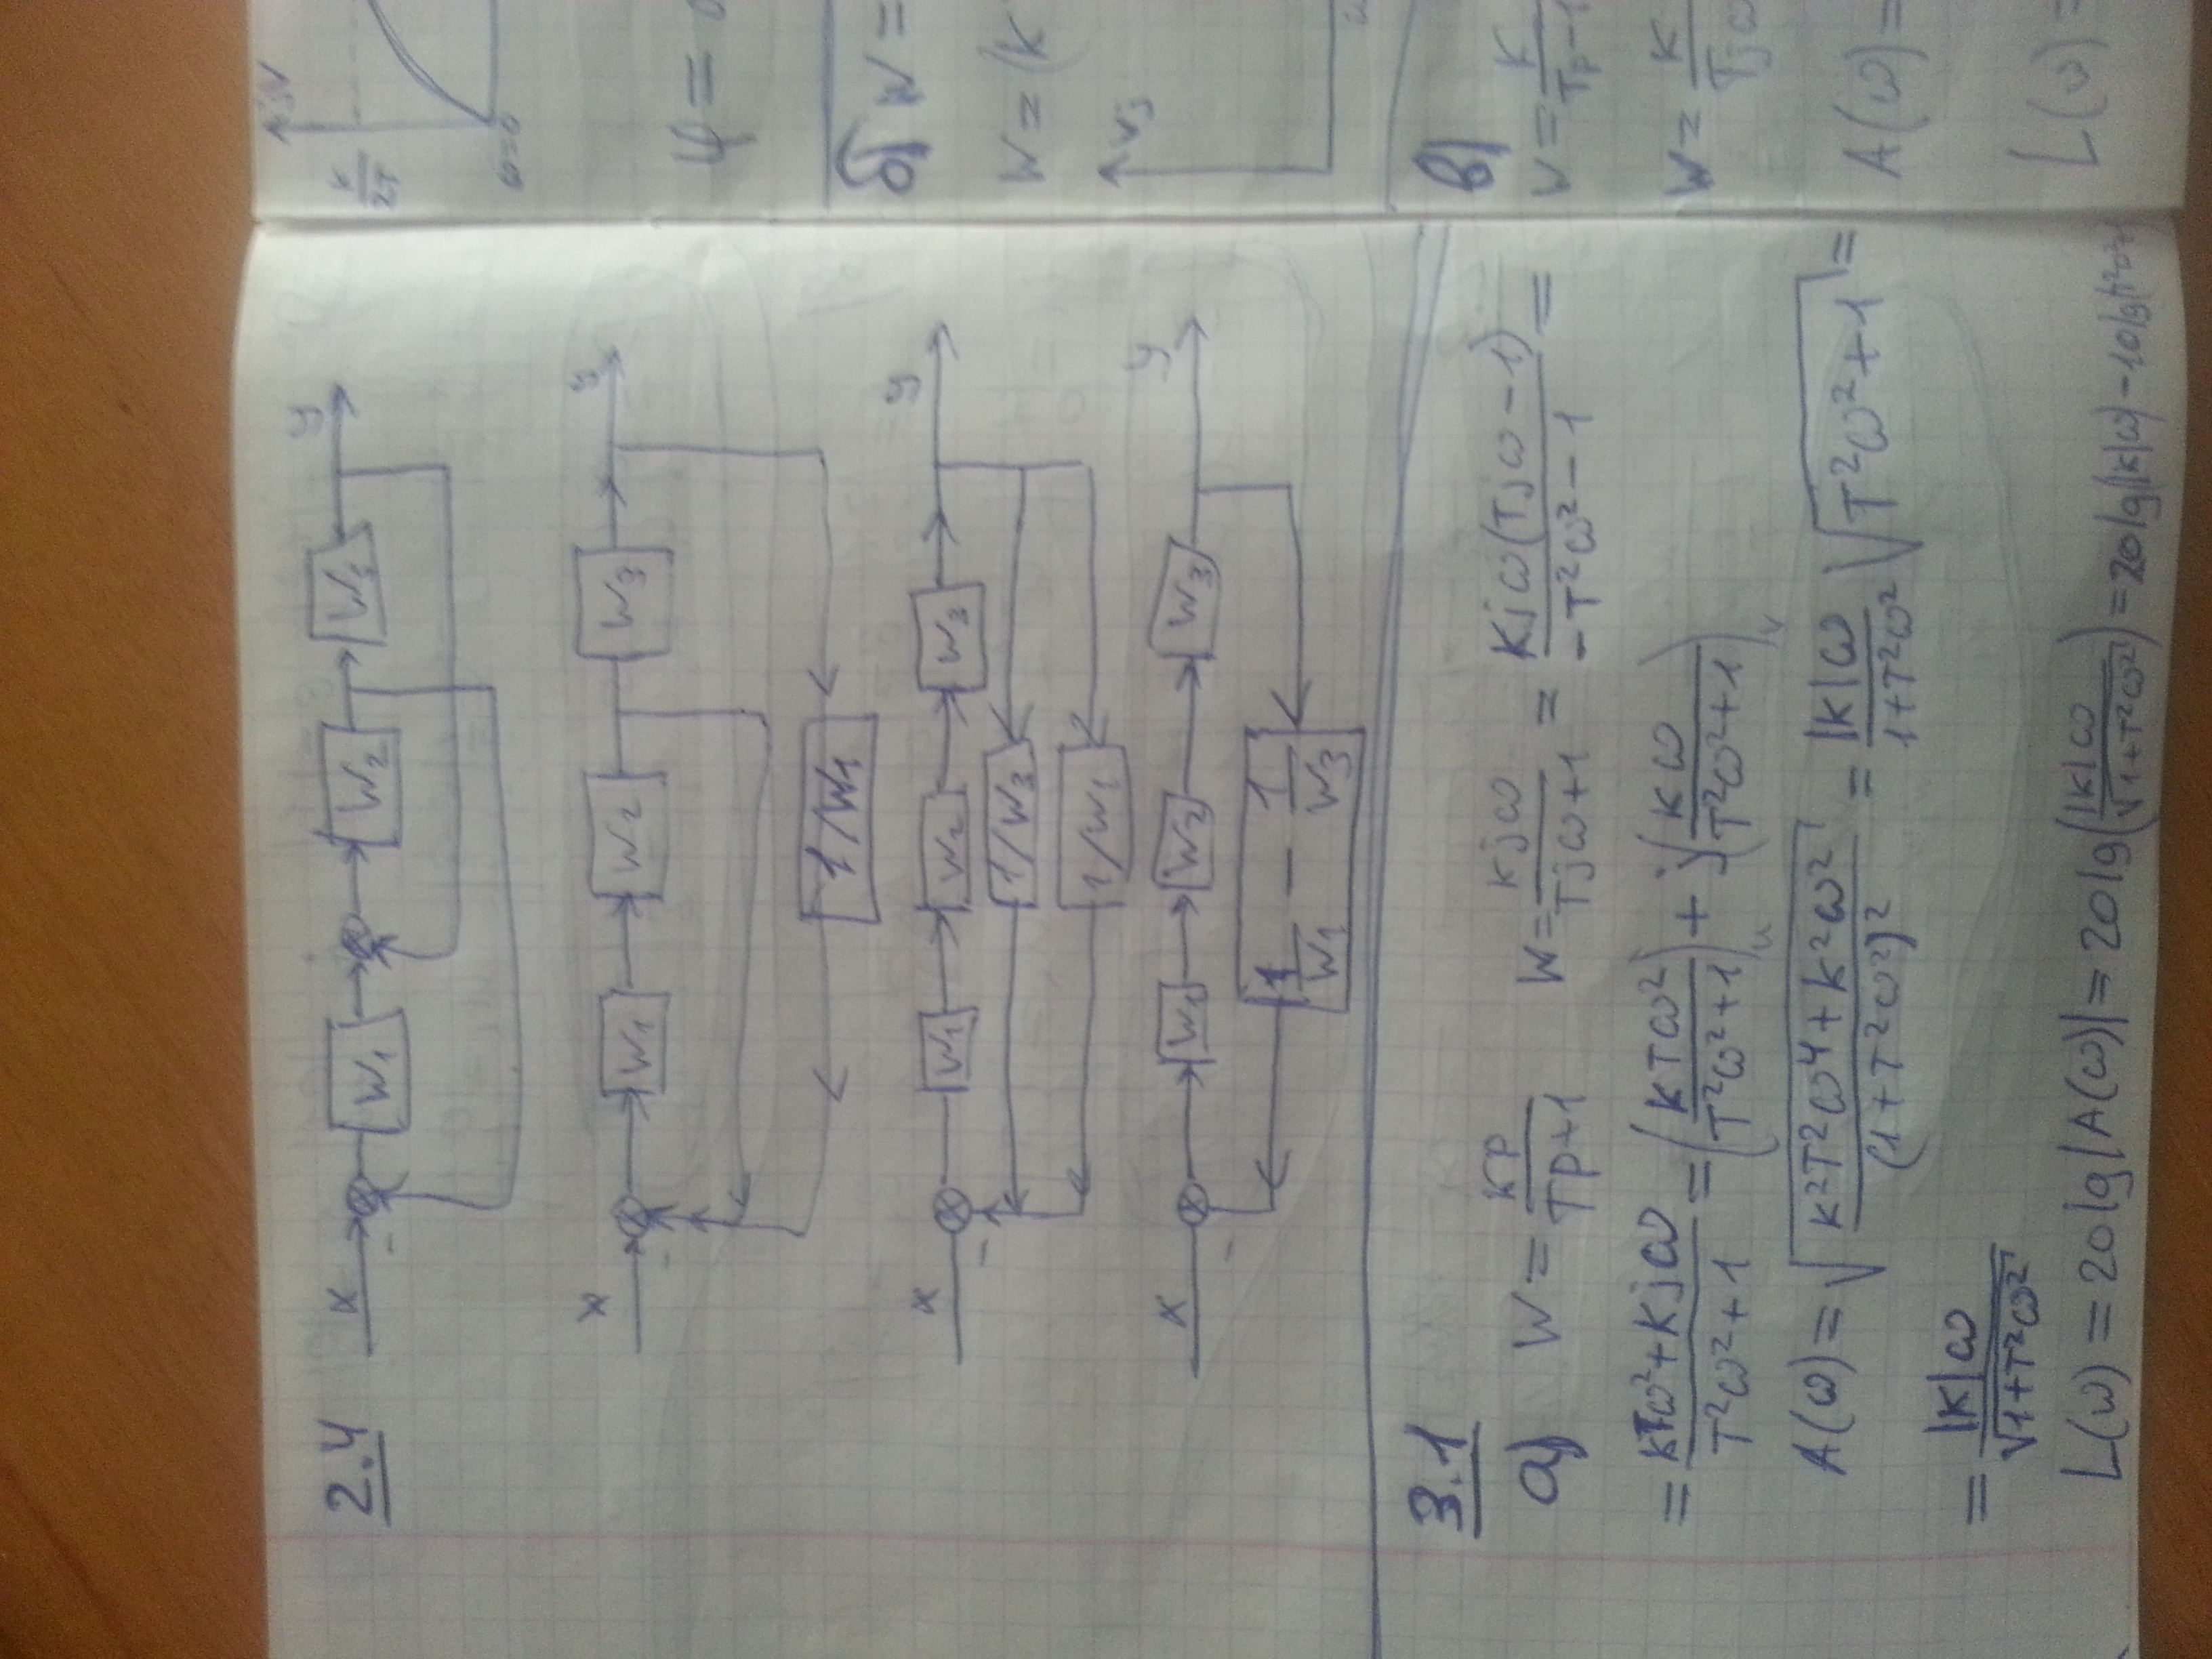 2.4
x - W₁ W₂ W₃ y
x - W₁ W₂ W₃ y
1/W₁
x - W₁ W₂ W₃ y
1/W₃
1/W₁
x - W₁ W₂ W₃ y
1/W₁ − 1/W₃
3.1
а) W = Kp/(Tp+1) W = Kjω/(Tjω+1) = Kjω(Tjω−1)/(−T²ω²−1) =
= (KTω²+Kjω)/(T²ω²+1) = (KTω²/(T²ω²+1))u + j(Kω/(T²ω²+1))v
A(ω) = √((K²T²ω⁴+K²ω²)/(1+T²ω²)²) = |K|ω/(1+T²ω²) √(T²ω²+1) =
= |K|ω/√(1+T²ω²)
L(ω) = 20lg|A(ω)| = 20lg(|K|ω/√(1+T²ω²)) = 20lg(|K|ω) − 10lg(T²ω²+1
K/2T
ω=0
φ =
б) W =
W = (K
vj
в)
W = K/(Tp−1
W = K/(Tjω
A(ω) =
L(ω) =